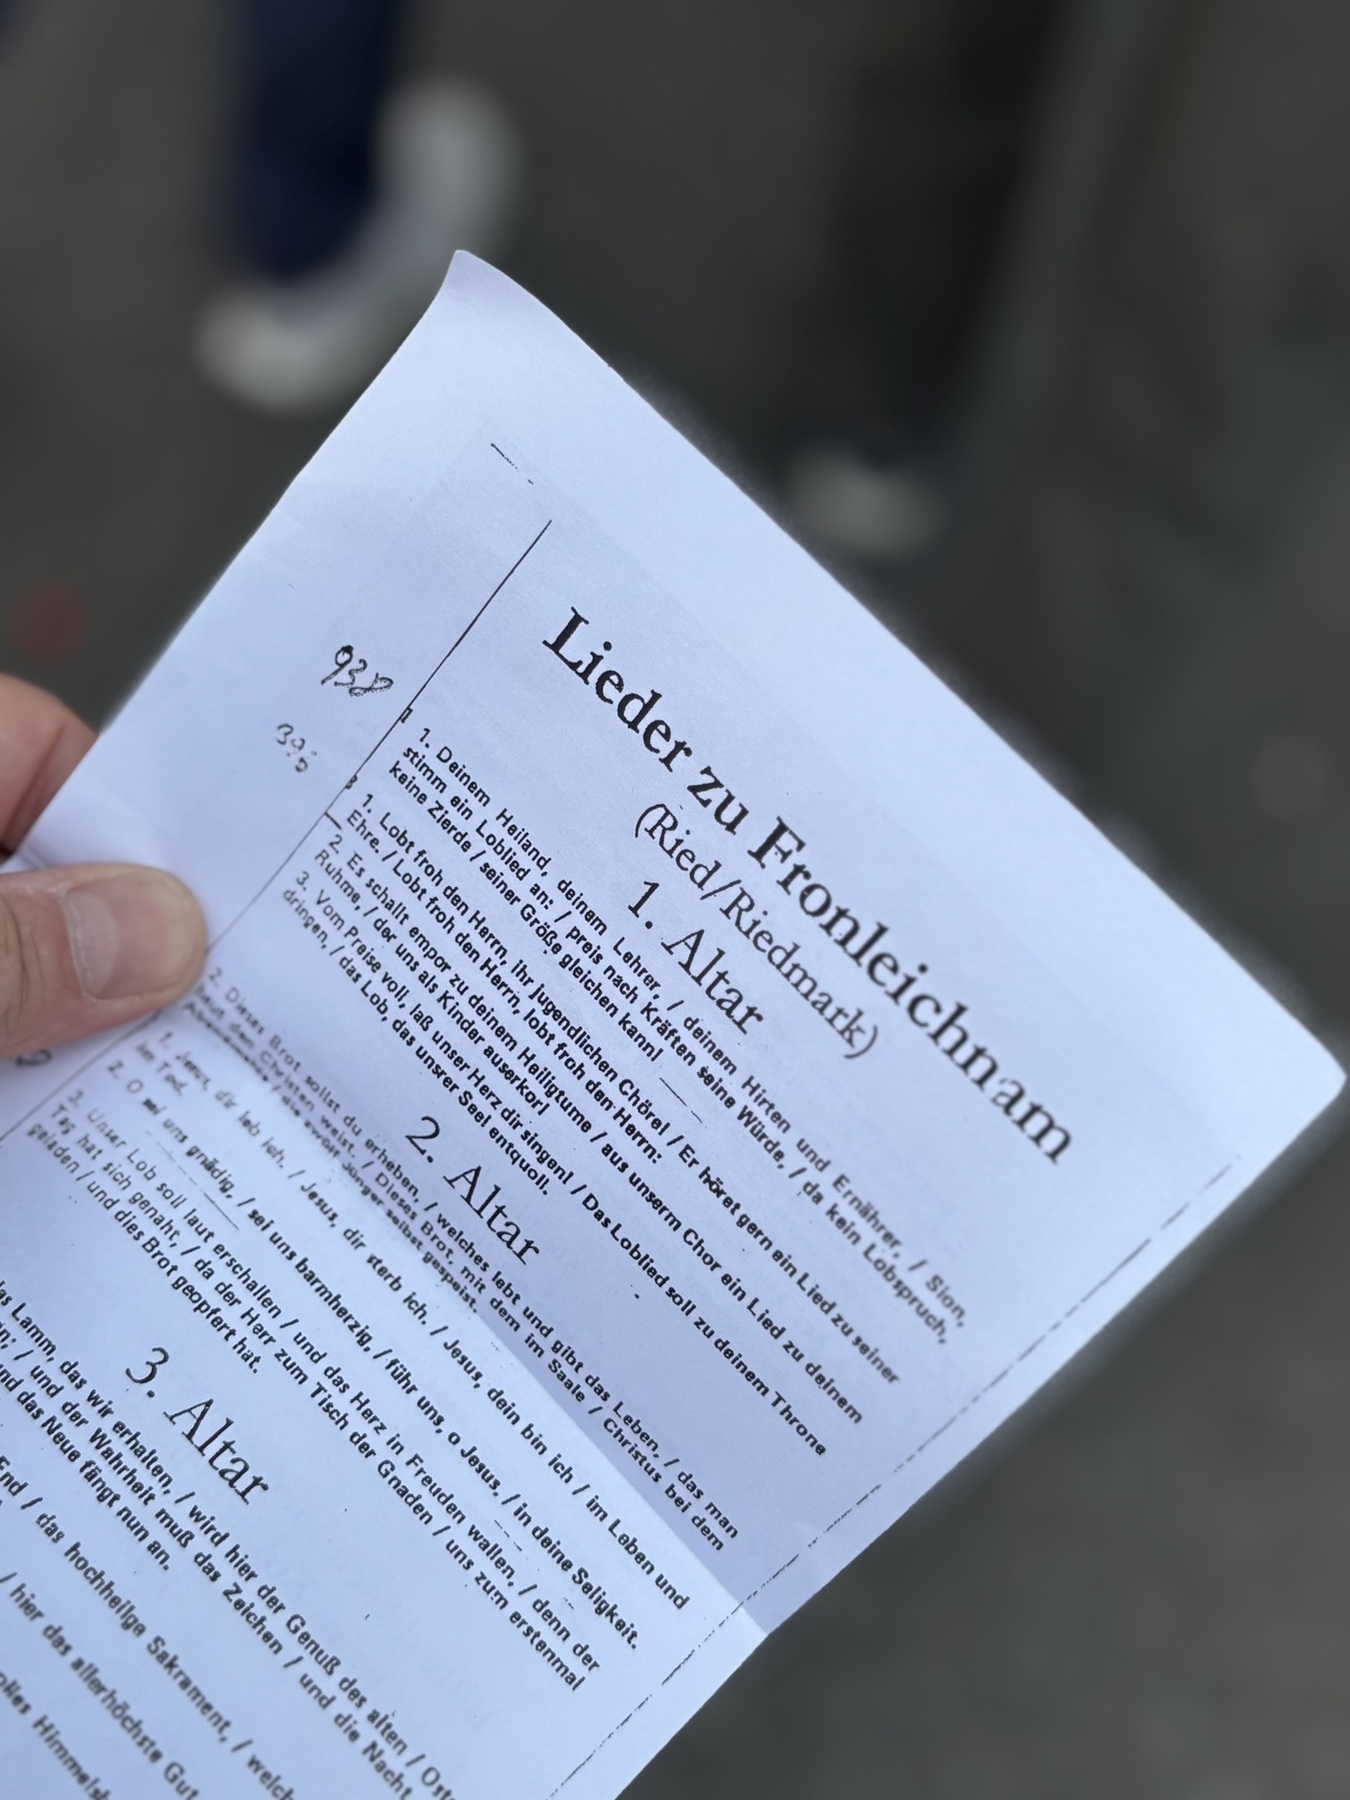 Lieder zu Fronleichnam
(Ried/Riedmark)
1. Altar
938
1. Deinem Heiland, deinem Lehrer, / deinem Hirten und Ernährer, / Sion,
stimm ein Loblied an: / preis nach Kräften seine Würde, / da kein Lobspruch,
keine Zierde / seiner Größe gleichen kann!
1. Lobt froh den Herrn, ihr jugendlichen Chöre! / Er höret gern ein Lied zu seiner
Ehre. / Lobt froh den Herrn, lobt froh den Herrn:
2. Es schallt empor zu deinem Heiligtume / aus unserm Chor ein Lied zu deinem
Ruhme, / der uns als Kinder auserkor!
3. Vom Preise voll, laß unser Herz dir singen! / Das Loblied soll zu deinem Throne
dringen, / das Lob, das unsrer Seel entquoll.
2. Altar
2. Dieses Brot sollst du erheben, / welches lebt und gibt das Leben, / das man
heut den Christen weist. / Dieses Brot, mit dem im Saale / Christus bei dem
Abendmahle / die zwölf Jünger selbst gespeist.
1. Jesus, dir leb ich. / Jesus, dir sterb ich. / Jesus, dein bin ich / im Leben und
im Tod.
2. O sei uns gnädig, / sei uns barmherzig, / führ uns, o Jesus, / in deine Seligkeit.
3. Unser Lob soll laut erschallen / und das Herz in Freuden wallen, / denn der
Tag hat sich genaht, / da der Herr zum Tisch der Gnaden / uns zum erstenmal
geladen / und dies Brot geopfert hat.
3. Altar
Lamm, das wir erhalten, / wird hier der Genuß des alten /
/ und der Wahrheit muß das Zeichen / und die Nacht
und das Neue fängt nun an.
/ das hochheilge Sakrament, /
/ hier das allerhöchste Gut